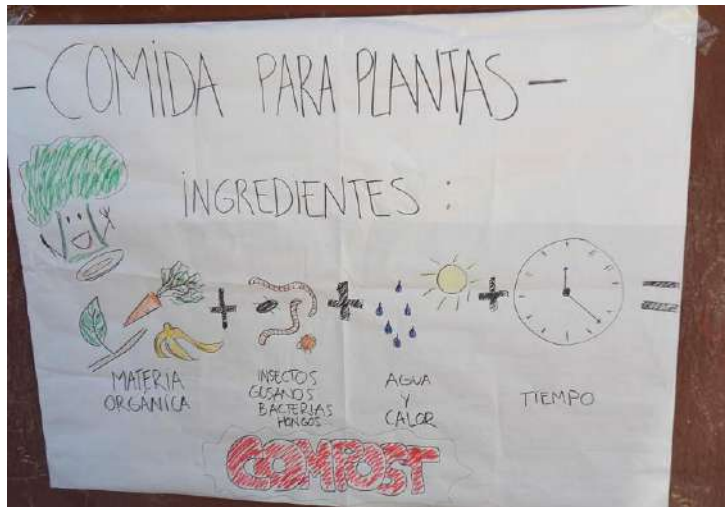 - COMIDA PARA PLANTAS -
INGREDIENTES :
+ + + =
MATERIA
ORGÁNICA
INSECTOS
GUSANOS
BACTERIAS
HONGOS
AGUA
Y
CALOR
TIEMPO
COMPOST